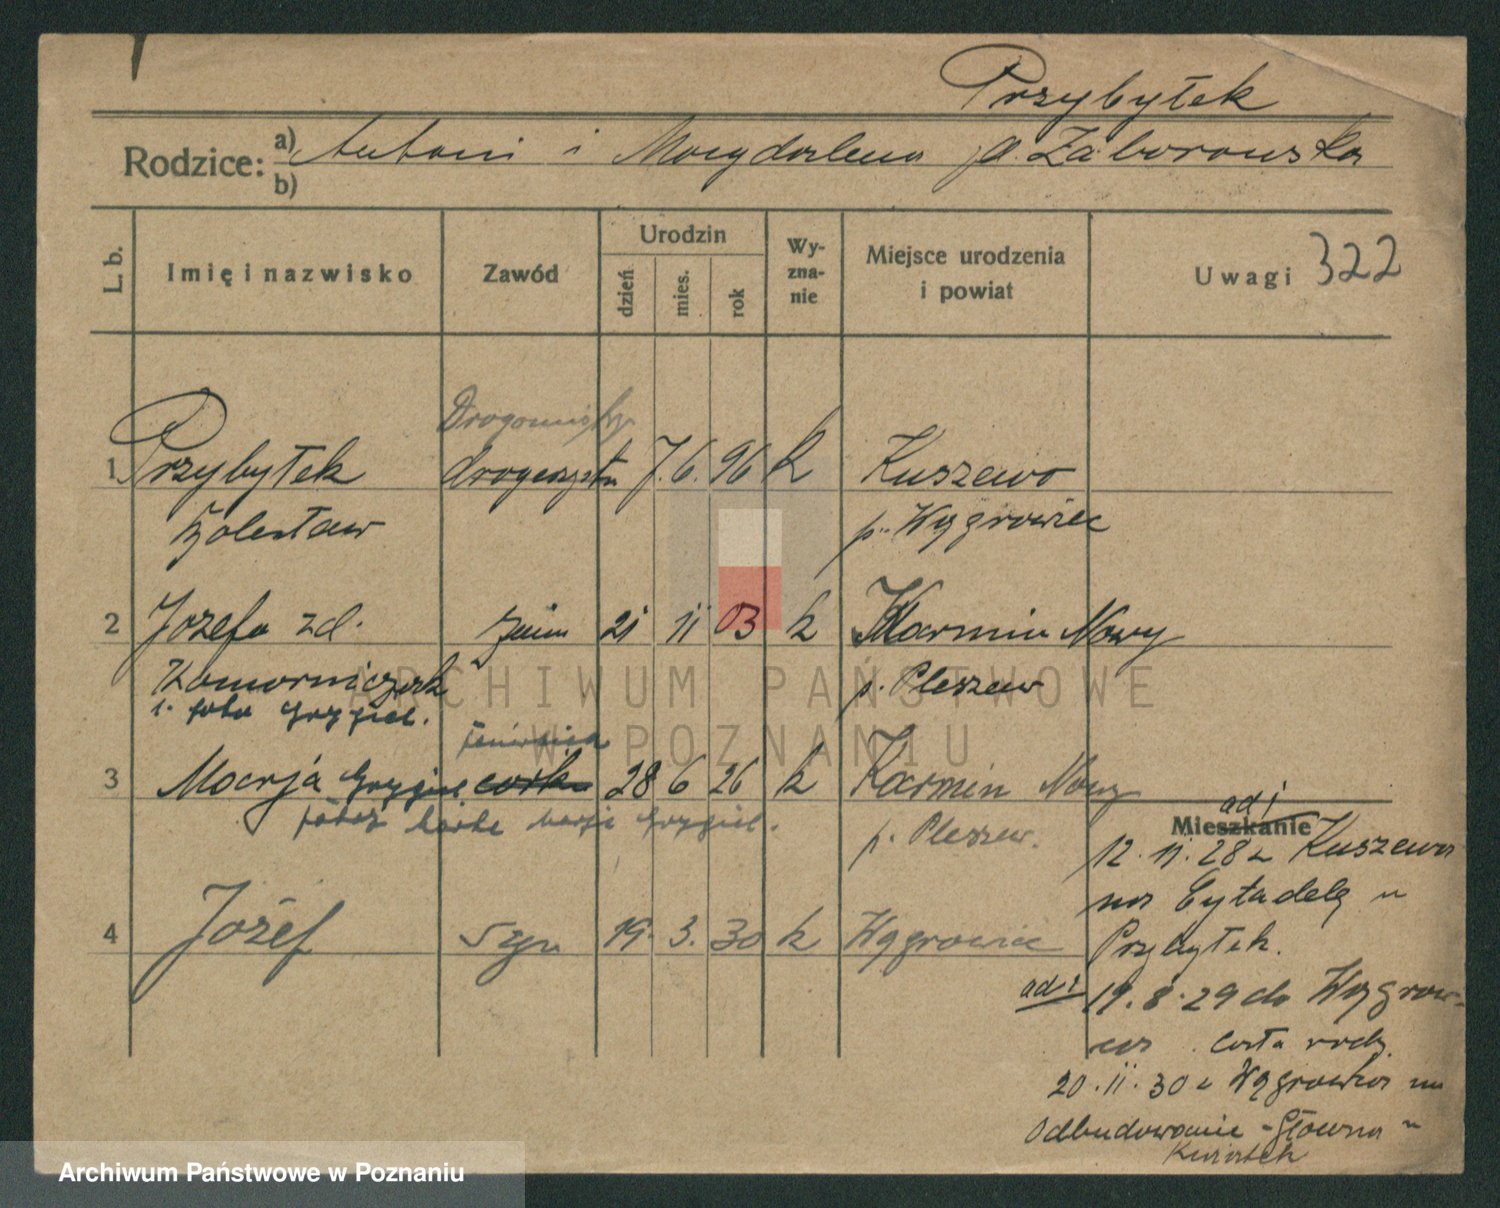 Przybyłek
Rodzice: a) Antoni i Magdalena p. Zaborowska
b)
L. b.
Imię i nazwisko
Zawód
Urodzin
dzień
mies.
rok
Wy-
zna-
nie
Miejsce urodzenia
i powiat
Uwagi 322
1 Przybyłek 7. 6. 96 k Kuszewo
Bolesław p. Wągrowiec
2 Józefa zd. 21 11 03 k Karmin Nowy
Komorniczak p. Pleszew
3 Marja Grygiel córka 28 6 26 k Karmin Nowy
p. Pleszew.
4 Józef Syn 19. 3. 30 k Wągrowiec
ad 1
Mieszkanie
12. 11. 28 z Kuszewa
na Cytadelę u
Przybyłek.
ad 1 19. 8. 29 do Wągrow-
ca . Cała rodz.
20. 11. 30 z Wągrowca na
Odbudowanie - Główna u
ARCHIWUM PAŃSTWOWE
W POZNANIU
Archiwum Państwowe w Poznaniu